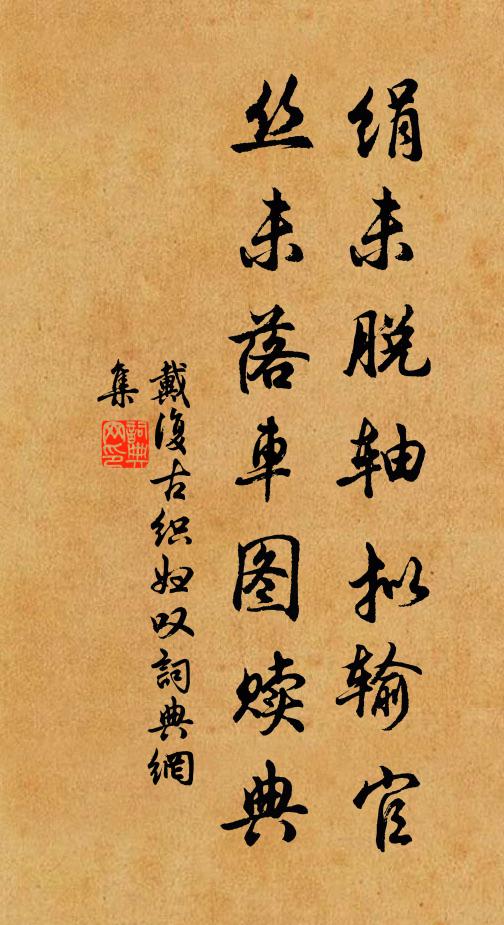 绢未脱轴拟输官
丝未落车图赎典
戴復古织妇叹詞典網
集
詞典网印